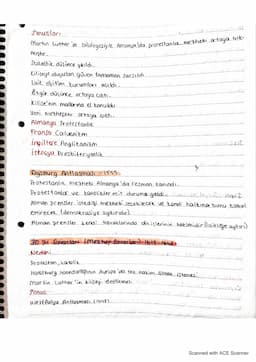 Sonuçları
Martin Luther'in bildirgesiyle Almanya'da protestanlık mezhebi ortaya çıktı
Skolastik düşünce yıkıldı.
Kiliseye duyulan güven tamamen sarsıldı
Laik eğitim kurumları açıldı.
Özgür düşünce ortaya çıktı.
Kilise'nin mallarına el konuldu
Yeni mezhepler ortaya çıktı.
Almanya Protestanlık
Fransa Calvenizm
İngiltere Anglikanizm
İskoçya Presbiteryenlik
Ogsburg Antlaşması - 1555
Protestanlık mezhebi Almanya'da resmen tanındı.
Protestanlar ve katolikler eşit duruma geldi.
Alman prensler istediği mezhebi seçebilecek ve kendi halkına bunu kabul
Ettirecek (demokrasiye aykırıdır)
Alman prensler kendi topraklarında din işlerinin hakimidir (laikliğe aykırı)
30 Yıl Savaşları (Mezhep Savaşları) 1618-1648
Neden:
Protestan, katolik
Habsburg hanedanlığının Avrupa'da tek hakim olmak istemesi
Martin Luther'in kiliseyi eleştirmesi
Sonuç
Westfalya Antlaşması (1648)
Scanned with ACE Scanner